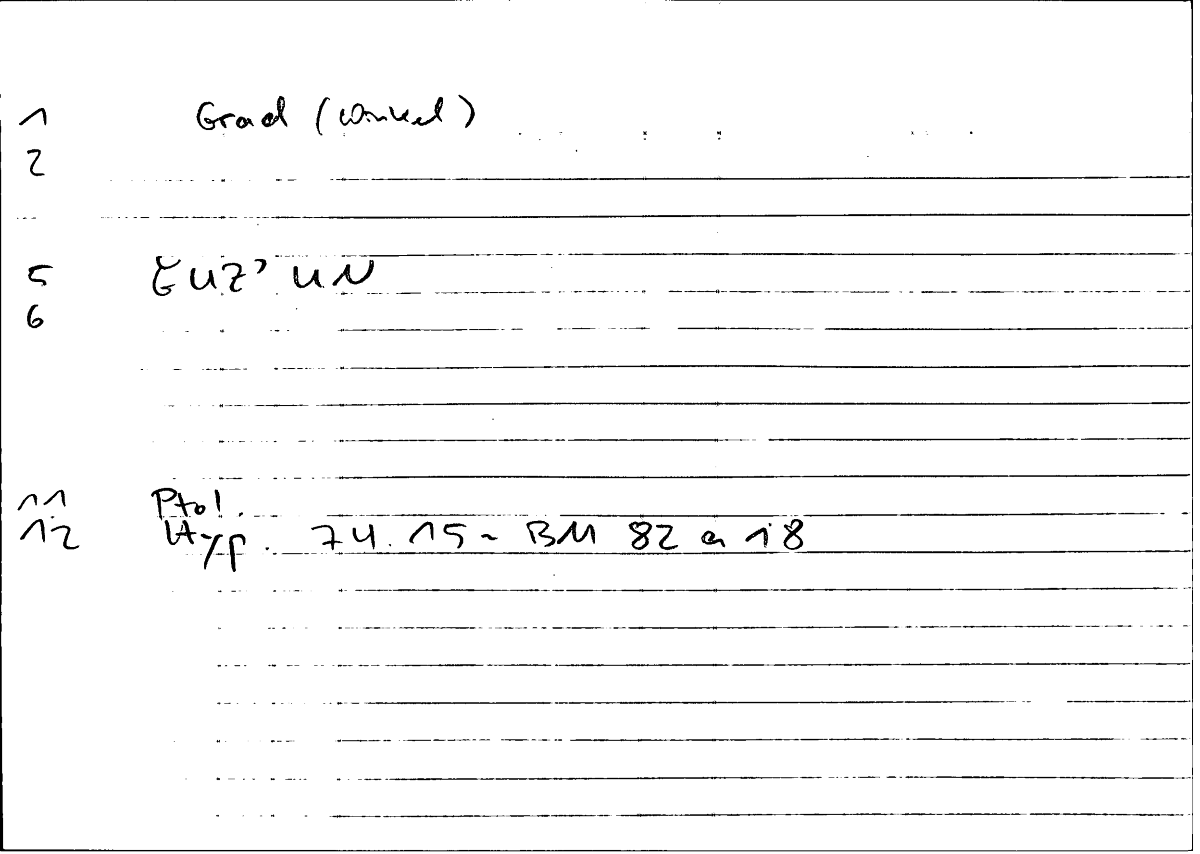 1 Grad (Winkel)
2
5 ξUZ' UN
6
11 Ptol.
12 Hyp. 74.15 ~ BM 82 a 18